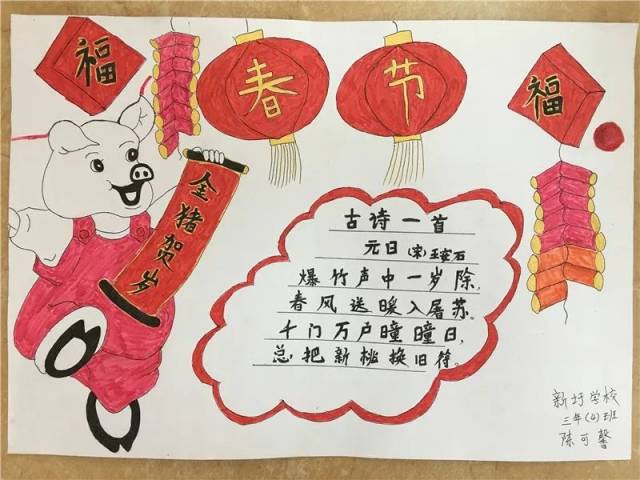 福
春节
福
金猪贺岁
古诗一首
元日(宋)王安石
爆竹声中一岁除,
春风送暖入屠苏。
千门万户曈曈日,
总把新桃换旧符。
新圩学校
三年(4)班
陈可馨